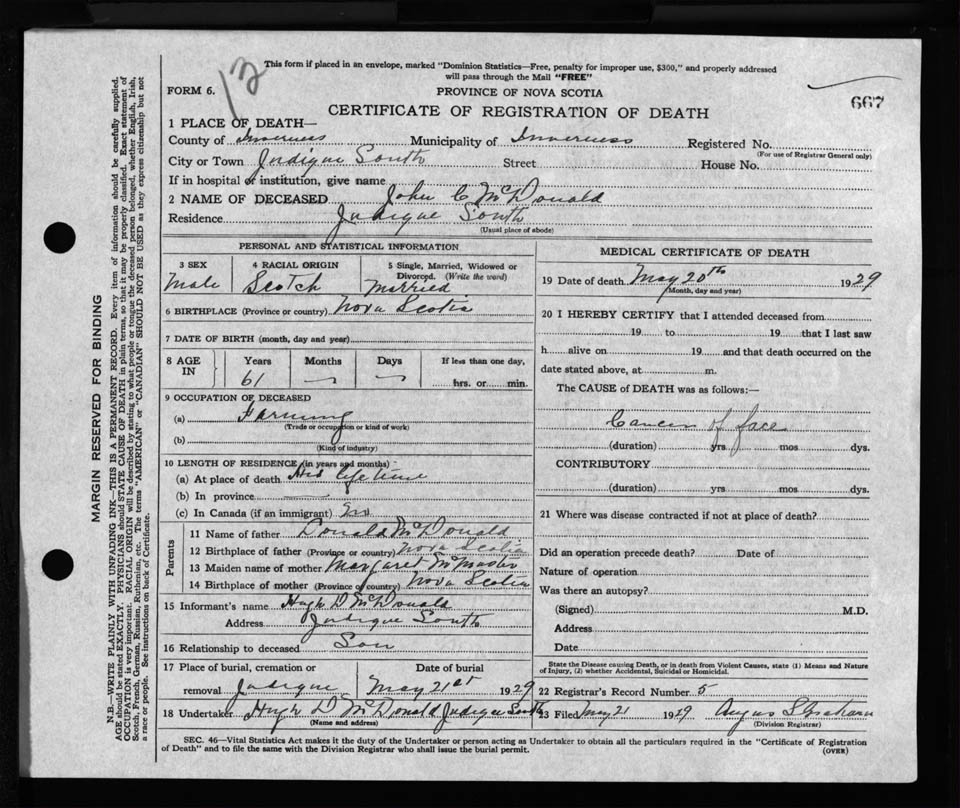 This form if placed in an envelope, marked "Dominion Statistics—Free, penalty for improper use, $300," and properly addressed
will pass through the Mail "FREE"
12
FORM 6.
PROVINCE OF NOVA SCOTIA
667
CERTIFICATE OF REGISTRATION OF DEATH
1 PLACE OF DEATH—
County of Inverness Municipality of Inverness Registered No.
(For use of Registrar General only)
City or Town Judique South Street House No.
If in hospital or institution, give name
2 NAME OF DECEASED John C McDonald
Residence Judique South
(Usual place of abode)
PERSONAL AND STATISTICAL INFORMATION
3 SEX 4 RACIAL ORIGIN 5 Single, Married, Widowed or
Divorced. (Write the word)
Male Scotch Married
6 BIRTHPLACE (Province or country) Nova Scotia
7 DATE OF BIRTH (month, day and year)
8 AGE IN Years Months Days If less than one day,
61 hrs. or min.
9 OCCUPATION OF DECEASED
(a) Farming
(Trade or occupation or kind of work)
(b)
(Kind of industry)
10 LENGTH OF RESIDENCE (in years and months)
(a) At place of death His life time
(b) In province
(c) In Canada (if an immigrant)
Parents
11 Name of father Donald McDonald
12 Birthplace of father (Province or country) Nova Scotia
13 Maiden name of mother Margaret McMaster
14 Birthplace of mother (Province or country) Nova Scotia
15 Informant's name Hugh D McDonald
Address Judique South
16 Relationship to deceased Son
17 Place of burial, cremation or Date of burial
removal Judique May 21st 1929
18 Undertaker Hugh D McDonald Judique South
(Name and address)
MEDICAL CERTIFICATE OF DEATH
19 Date of death May 20th 1929
(Month, day and year)
20 I HEREBY CERTIFY that I attended deceased from
19 to 19 that I last saw
h alive on 19 and that death occurred on the
date stated above, at m.
The CAUSE of DEATH was as follows:—
Cancer of face
(duration) yrs mos dys.
CONTRIBUTORY
(duration) yrs mos dys.
21 Where was disease contracted if not at place of death?
Did an operation precede death? Date of
Nature of operation
Was there an autopsy?
(Signed) M.D.
Address
Date
State the Disease causing Death, or in death from Violent Causes, state (1) Means and Nature
of Injury, (2) whether Accidental, Suicidal or Homicidal.
22 Registrar's Record Number 5
23 Filed May 21 1929 Angus S Graham
(Division Registrar)
SEC. 46—Vital Statistics Act makes it the duty of the Undertaker or person acting as Undertaker to obtain all the particulars required in the "Certificate of Registration
of Death" and to file the same with the Division Registrar who shall issue the burial permit.
(OVER)
MARGIN RESERVED FOR BINDING
N.B.—WRITE PLAINLY WITH UNFADING INK—THIS IS A PERMANENT RECORD. Every item of information should be carefully supplied.
AGE should be stated EXACTLY. PHYSICIANS should STATE CAUSE OF DEATH in plain terms, so that it may be properly classified. Exact statement of
OCCUPATION is very important. RACIAL ORIGIN will be described by stating to what people or tongue the deceased person belonged, whether English, Irish,
Scotch, French, German, Russian, Ruthenian, etc. The terms "AMERICAN" or "CANADIAN" SHOULD NOT BE USED as they express citizenship but not
a race or people. See instructions on back of Certificate.